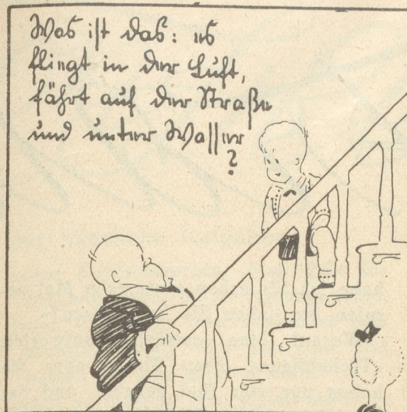 Was ist das: es
fliegt in der Luft,
fährt auf der Straße
und unter Wasser
?